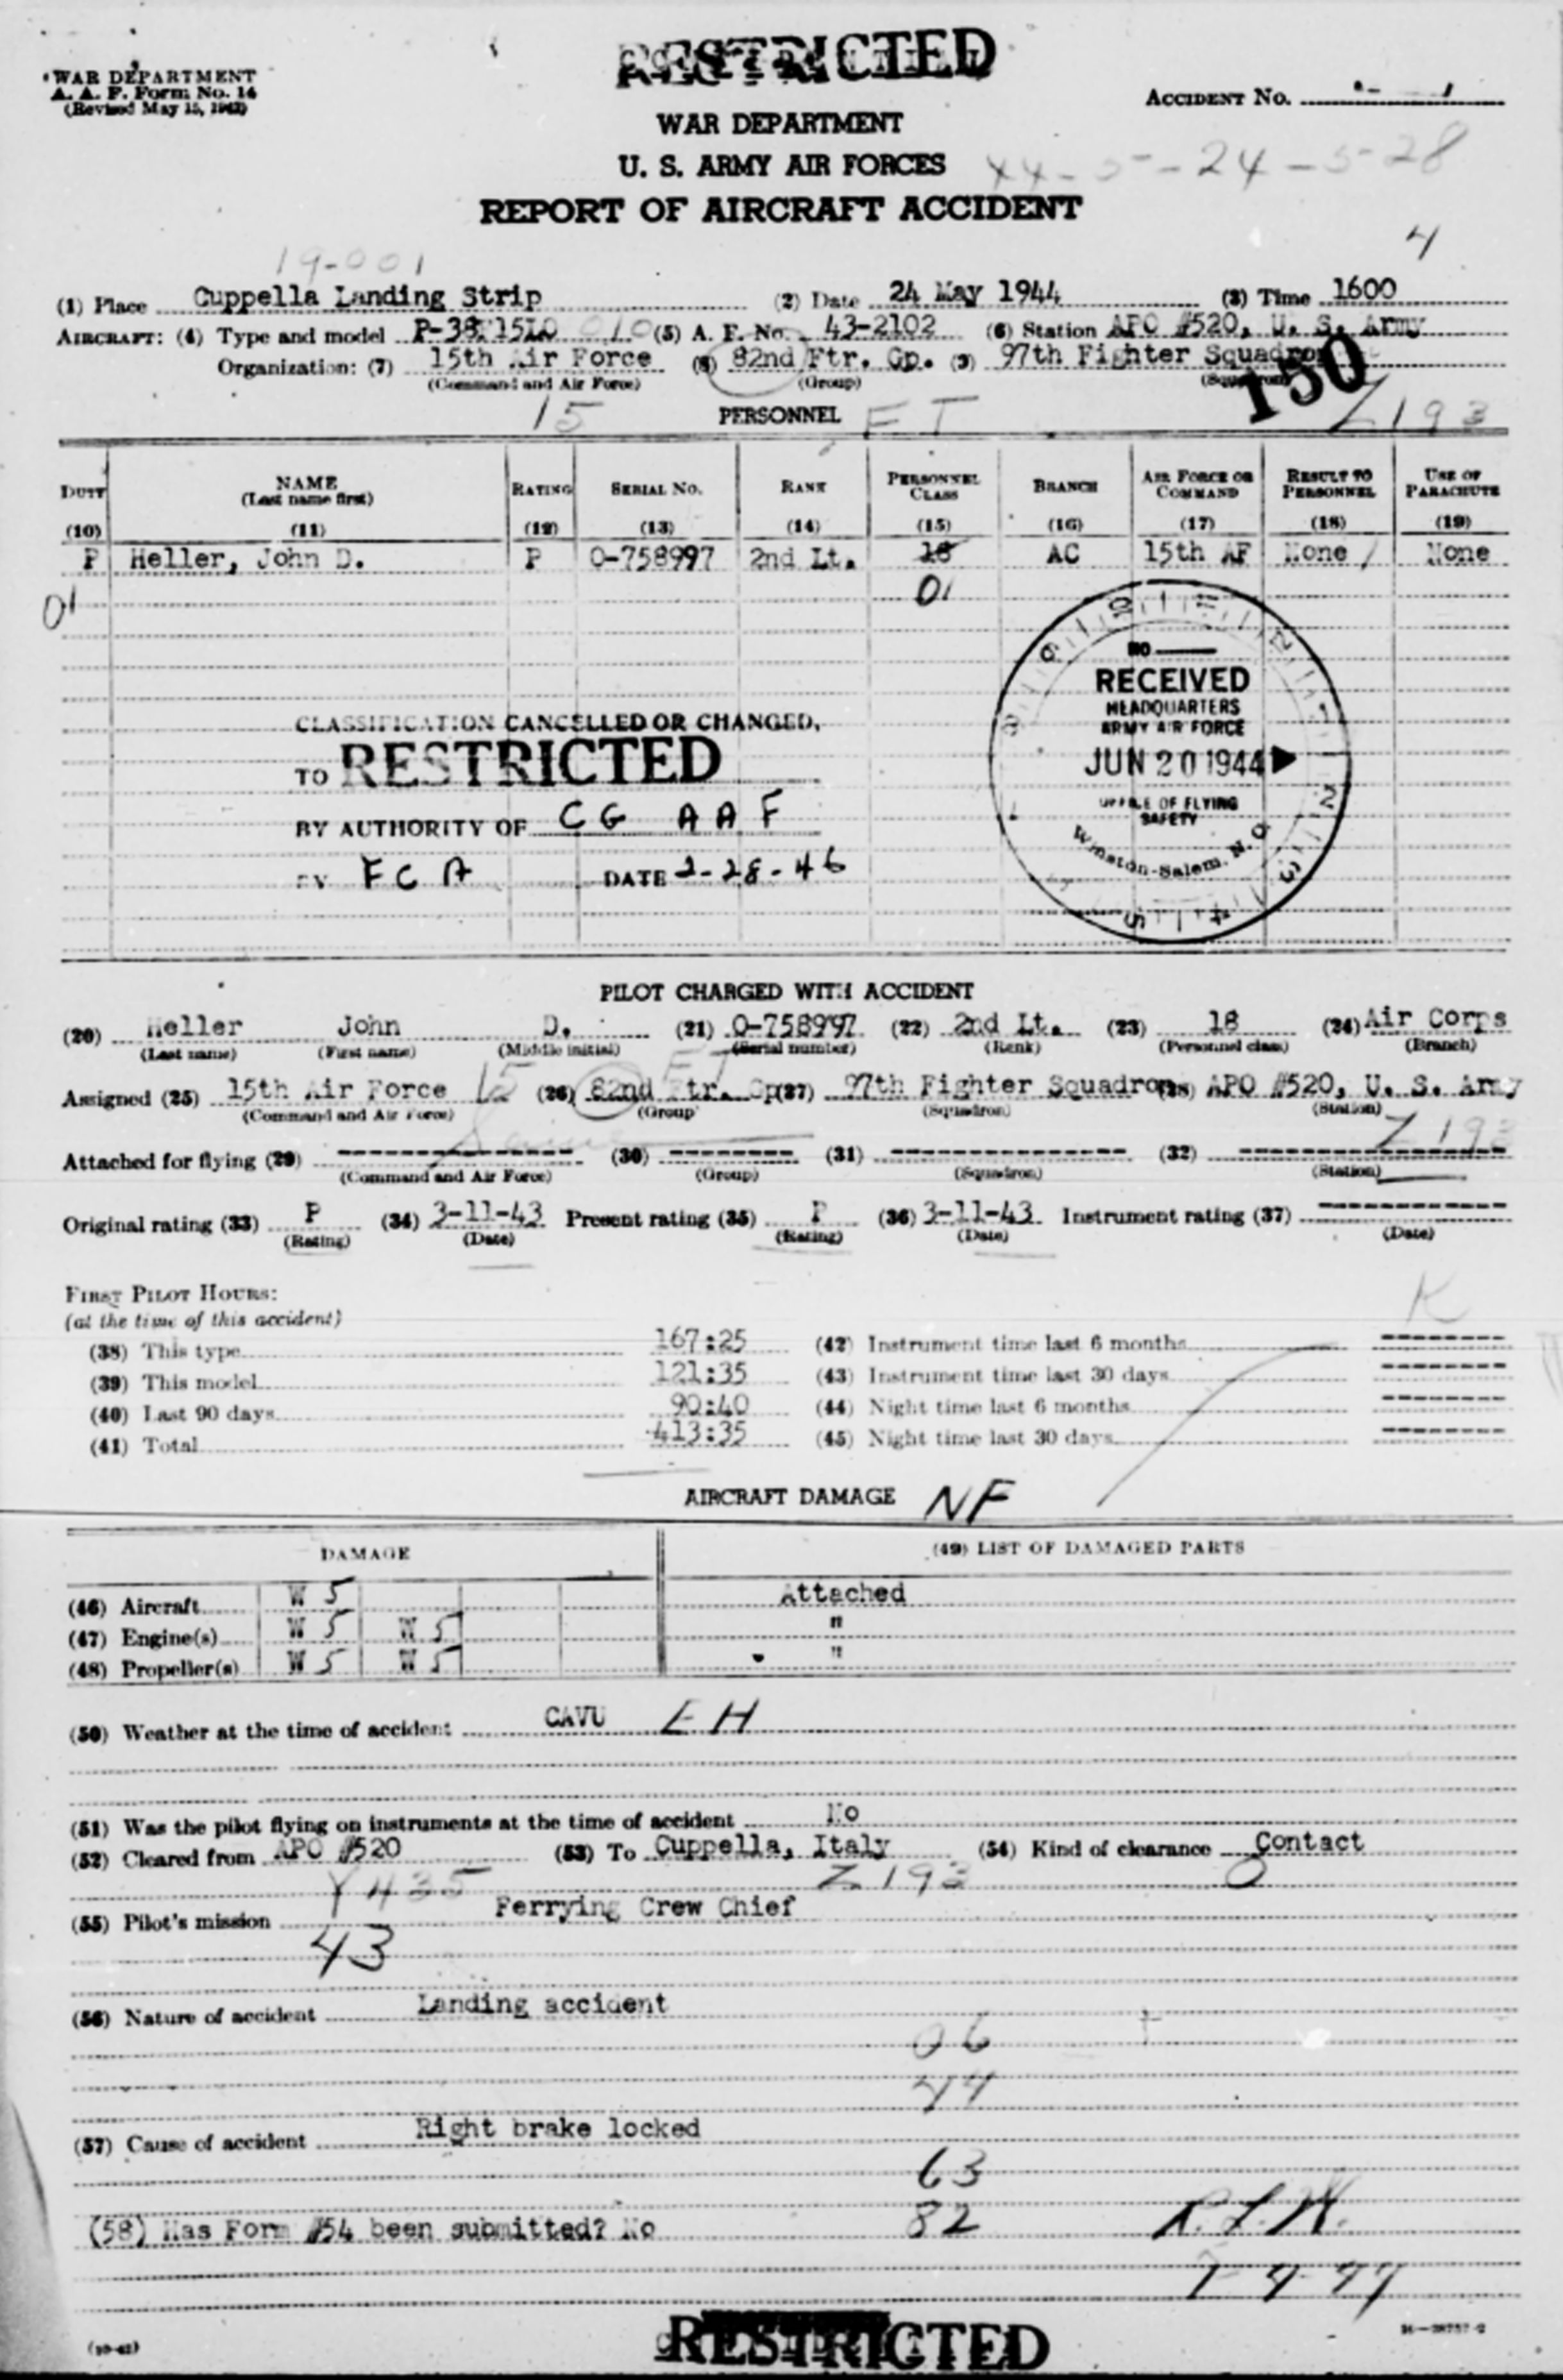 RESTRICTED
WAR DEPARTMENT
A. A. F. Form No. 14
(Revised May 15, 1942)
ACCIDENT No.
WAR DEPARTMENT
U. S. ARMY AIR FORCES
44-5-24-528
REPORT OF AIRCRAFT ACCIDENT
4
19-001
(1) Place Cuppella Landing Strip (2) Date 24 May 1944 (3) Time 1600
AIRCRAFT: (4) Type and model P-38 (5) A. F. No. 43-2102 (6) Station APO #520, U. S. Army
Organization: (7) 15th Air Force (8) 82nd Ftr. Gp. (9) 97th Fighter Squadron
(Command and Air Force) (Group) (Squadron)
150
15 PERSONNEL FT Z193
DUTY NAME (Last name first) RATING SERIAL NO. RANK PERSONNEL CLASS BRANCH AIR FORCE OR COMMAND RESULT TO PERSONNEL USE OF PARACHUTE
(10) (11) (12) (13) (14) (15) (16) (17) (18) (19)
P Heller, John D. P O-758997 2nd Lt. 18 AC 15th AF None None
01 01
NO
RECEIVED
HEADQUARTERS
ARMY AIR FORCE
JUN 20 1944
OFFICE OF FLYING
SAFETY
Winston-Salem, N. C.
CLASSIFICATION CANCELLED OR CHANGED,
TO RESTRICTED
BY AUTHORITY OF CG AAF
BY FCA DATE 2-28-46
PILOT CHARGED WITH ACCIDENT
(20) Heller John D. (21) O-758997 (22) 2nd Lt. (23) 18 (24) Air Corps
(Last name) (First name) (Middle initial) (Serial number) (Rank) (Personnel class) (Branch)
Assigned (25) 15th Air Force 15 (26) 82nd Ftr. Gp (27) 97th Fighter Squadron (28) APO #520, U. S. Army
(Command and Air Force) (Group) (Squadron) (Station)
Z193
Attached for flying (29) (30) (31) (32)
(Command and Air Force) (Group) (Squadron) (Station)
Original rating (33) P (34) 3-11-43 Present rating (35) P (36) 3-11-43 Instrument rating (37)
(Rating) (Date) (Rating) (Date) (Date)
FIRST PILOT HOURS:
K
(at the time of this accident)
(38) This type 167:25 (42) Instrument time last 6 months
(39) This model 121:35 (43) Instrument time last 30 days
(40) Last 90 days 90:40 (44) Night time last 6 months
(41) Total 413:35 (45) Night time last 30 days
AIRCRAFT DAMAGE NF
DAMAGE (49) LIST OF DAMAGED PARTS
(46) Aircraft W 5 Attached
(47) Engine(s) W 5 W 5 "
(48) Propeller(s) W 5 W 5 "
(50) Weather at the time of accident CAVU EH
(51) Was the pilot flying on instruments at the time of accident No
(52) Cleared from APO #520 (53) To Cuppella, Italy (54) Kind of clearance Contact
Y435 Z193 0
(55) Pilot's mission Ferrying Crew Chief
43
(56) Nature of accident Landing accident
06
44
(57) Cause of accident Right brake locked
63
(58) Has Form #54 been submitted? No 82
RESTRICTED